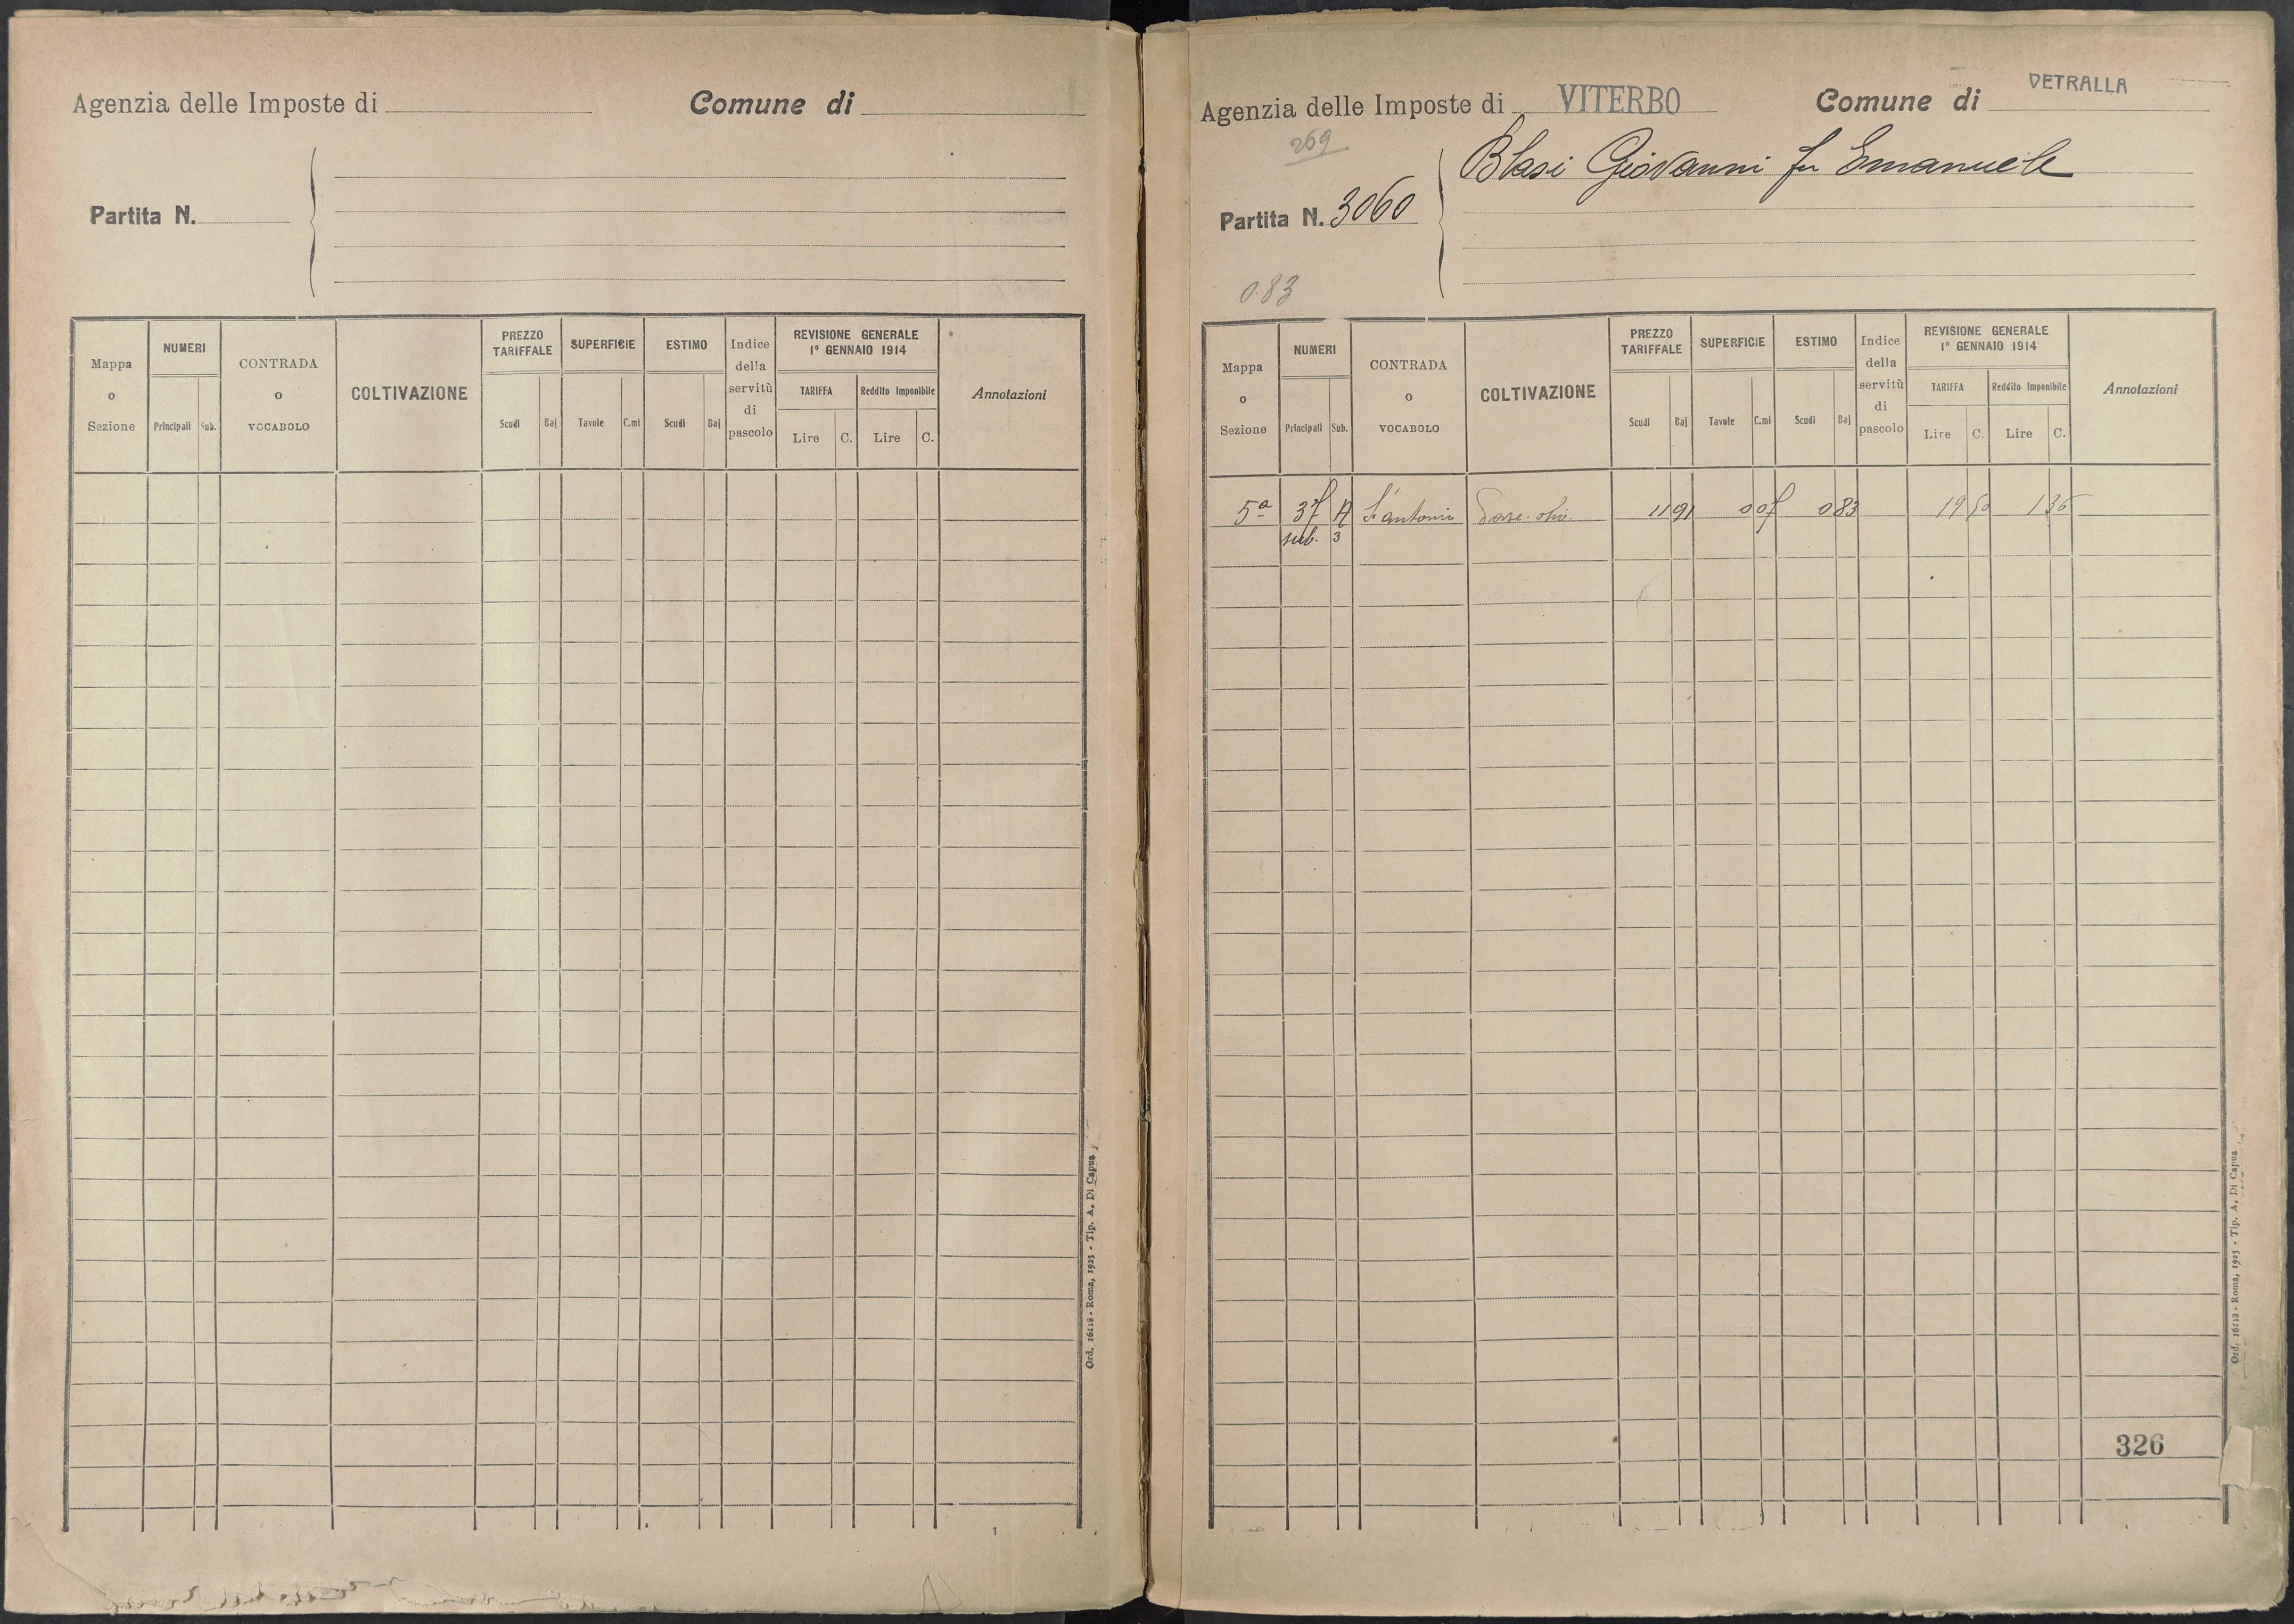 Agenzia delle Imposte di
Comune di
Partita N.
Mappa o Sezione
NUMERI
Principali
Sub.
CONTRADA o VOCABOLO
COLTIVAZIONE
PREZZO TARIFFALE
Scudi
Baj
SUPERFICIE
Tavole
C.mi
ESTIMO
Scudi
Baj
Indice della servitù di pascolo
REVISIONE GENERALE
1° GENNAIO 1914
TARIFFA
Reddito Imponibile
Lire
C.
Lire
C.
Annotazioni
Ord. 16118 - Roma, 1923 - Tip. A. Di Capua
Agenzia delle Imposte di VITERBO
Comune di VETRALLA
269
Blasi Giovanni fu Emanuele
Partita N. 3060
0.83
Mappa o Sezione
NUMERI
Principali
Sub.
CONTRADA o VOCABOLO
COLTIVAZIONE
PREZZO TARIFFALE
Scudi
Baj
SUPERFICIE
Tavole
C.mi
ESTIMO
Scudi
Baj
Indice della servitù di pascolo
REVISIONE GENERALE
1° GENNAIO 1914
TARIFFA
Reddito Imponibile
Lire
C.
Lire
C.
Annotazioni
5ª 37 S. Antonio oliv. 11 91 0 07 0 83 19 50 1 36
sub. 3
326
Ord. 16118 - Roma, 1923 - Tip. A. Di Capua